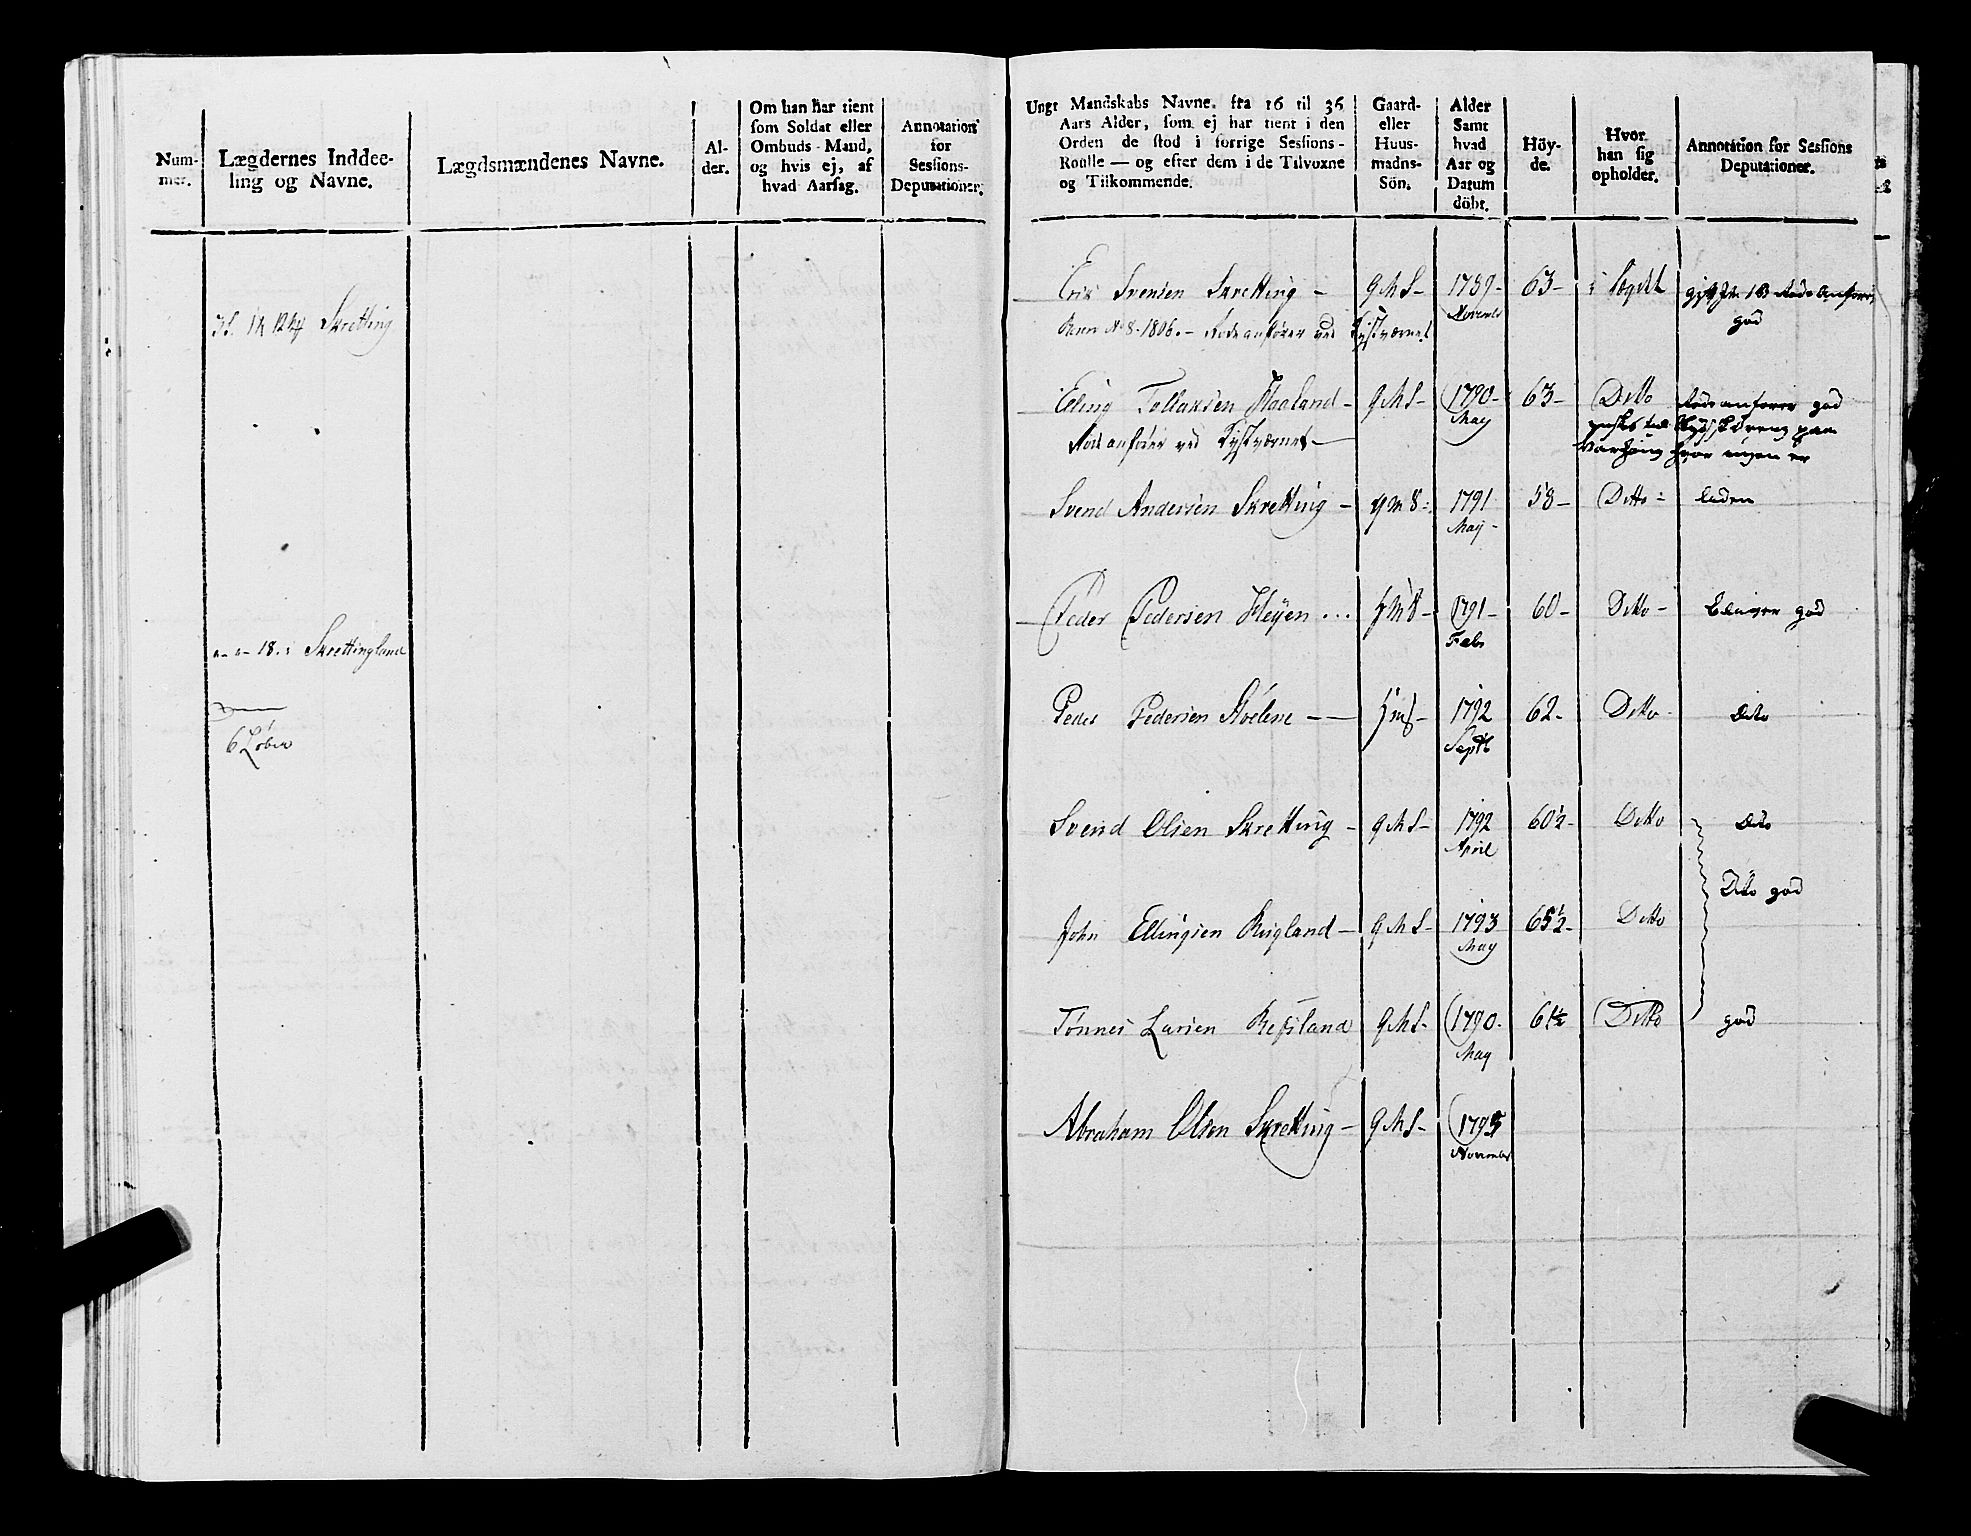 Num-
mer.
Lægdernes Inddee-
ling og Navne.
Lægdsmændenes Navne.
Al-
der.
Om han har tient
som Soldat eller
Ombuds-Mand,
og hvis ej, af
hvad Aarsag.
Annotation
for
Sessions-
Deputationer.
Skretting
18 Skrettingland
6 Løber
Ungt Mandskabs Navne, fra 16 til 36
Aars Alder, som ej har tient i den
Orden de stod i forrige Sessions-
Roulle — og efter dem i de Tilvoxne
og Tilkommende.
Gaard-
eller
Huus-
madns-
Sön.
Alder
Samt
hvad
Aar og
Datum
döbt.
Höy-
de.
Hvor
han sig
opholder.
Annotation for Sessions
Deputationer.
Eric Svensen Skretting – GMS – 1789 – 63 – i Lægdet
November
No 8 – 1806. – Rodeanfører ved Kystværnet
god
Eling Tollaksen Haaland – GMS – 1790 – 63 – Ditto Rodeanfører god
May
Rodeanfører ved Kystværnet –
Svend Andersen Skretting – GMS 1791 58 – Ditto liden
May
Peder Pedersen Høyen ... HMS – 1791 – 60 – Ditto – bliver god
Febr
Peder Pedersen Hoelene – HMS – 1792 62 – Ditto dito
Septb
Svend Olsen Skretting – GMS – 1792 60½ – Ditto dito
April
Dito god
John Ellingsen Rugland – GMS – 1793 65½ – Ditto
May
Tønnes Larsen Refsland GMS – 1790 61½ Ditto god
May
Abraham Olsen Skretting – GMS – 1795
November